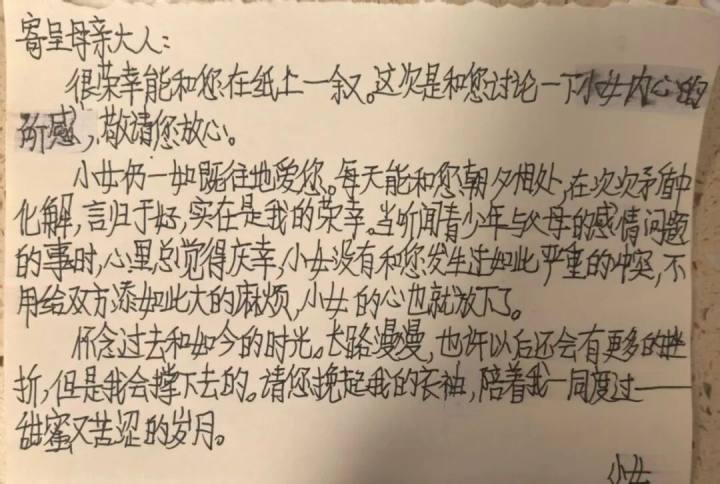 寄呈母亲大人:
很荣幸能和您在纸上一叙。这次是和您讨论一下小女内心的
所感,敬请您放心。
小女仍一如既往地爱您。每天能和您朝夕相处,在次次矛盾中
化解,言归于好,实在是我的荣幸。当听闻青少年与父母的感情问题
的事时,心里总觉得庆幸,小女没有和您发生过如此严重的冲突,不
用给双方添如此大的麻烦,小女的心也就放下了。
怀念过去和如今的时光。长路漫漫,也许以后还会有更多的挫
折,但是我会撑下去的。请您挽起我的衣袖,陪着我一同度过——
甜蜜又苦涩的岁月。
小女